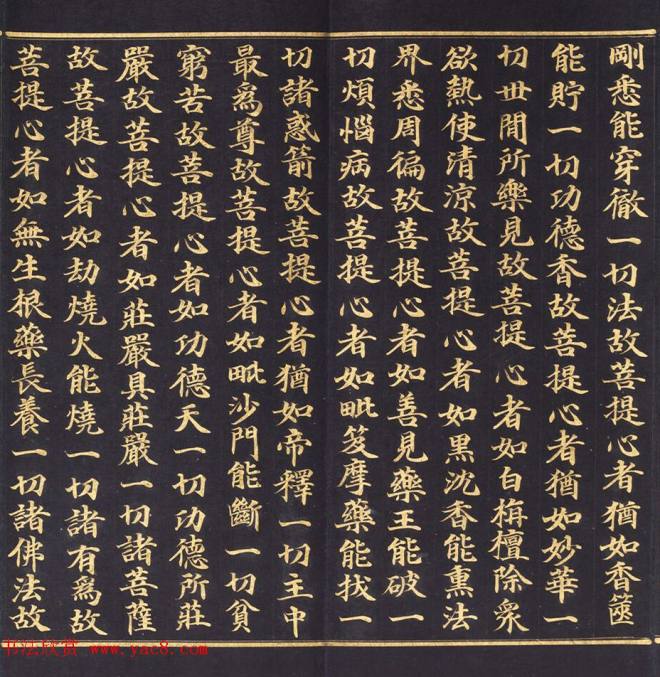 剛悉能穿徹一切法故菩提心者猶如香篋
能貯一切功德香故菩提心者猶如妙華一
切世間所樂見故菩提心者如白栴檀除眾
欲熱使清涼故菩提心者如黑沈香能熏法
界悉周徧故菩提心者如善見藥王能破一
切煩惱病故菩提心者如毗笈摩藥能拔一
切諸惑箭故菩提心者猶如帝釋一切主中
最為尊故菩提心者如毗沙門能斷一切貧
窮苦故菩提心者如功德天一切功德所莊
嚴故菩提心者如莊嚴具莊嚴一切諸菩薩
故菩提心者如劫燒火能燒一切諸有為故
菩提心者如無生根藥長養一切諸佛法故
书法欣赏 www.yac8.com